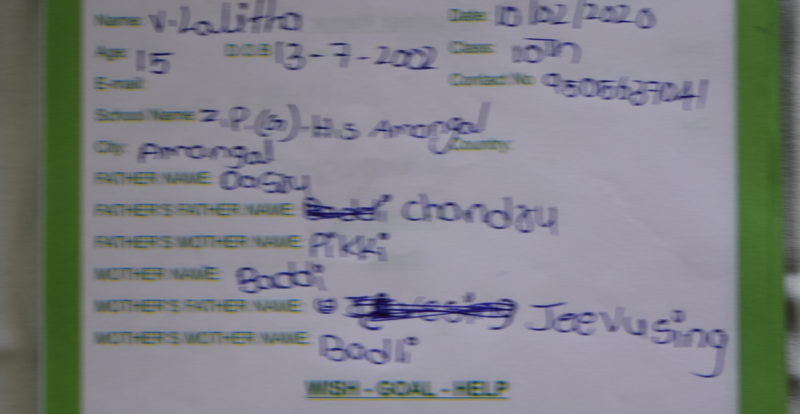 Name: V. Lalitha Date: 10/02/2020
Age: 15 D.O.B 13-7-2002 Class: 10Th
E-mail: Contact No
School Name: Z.P.(G)-H.S Amangal
City: Amangal Country:
FATHER NAME:
FATHER'S FATHER NAME: Chandru
FATHER'S MOTHER NAME: Pikki
MOTHER NAME: Baddi
MOTHER'S FATHER NAME: Jeevusing
MOTHER'S MOTHER NAME: Badli
WISH - GOAL - HELP